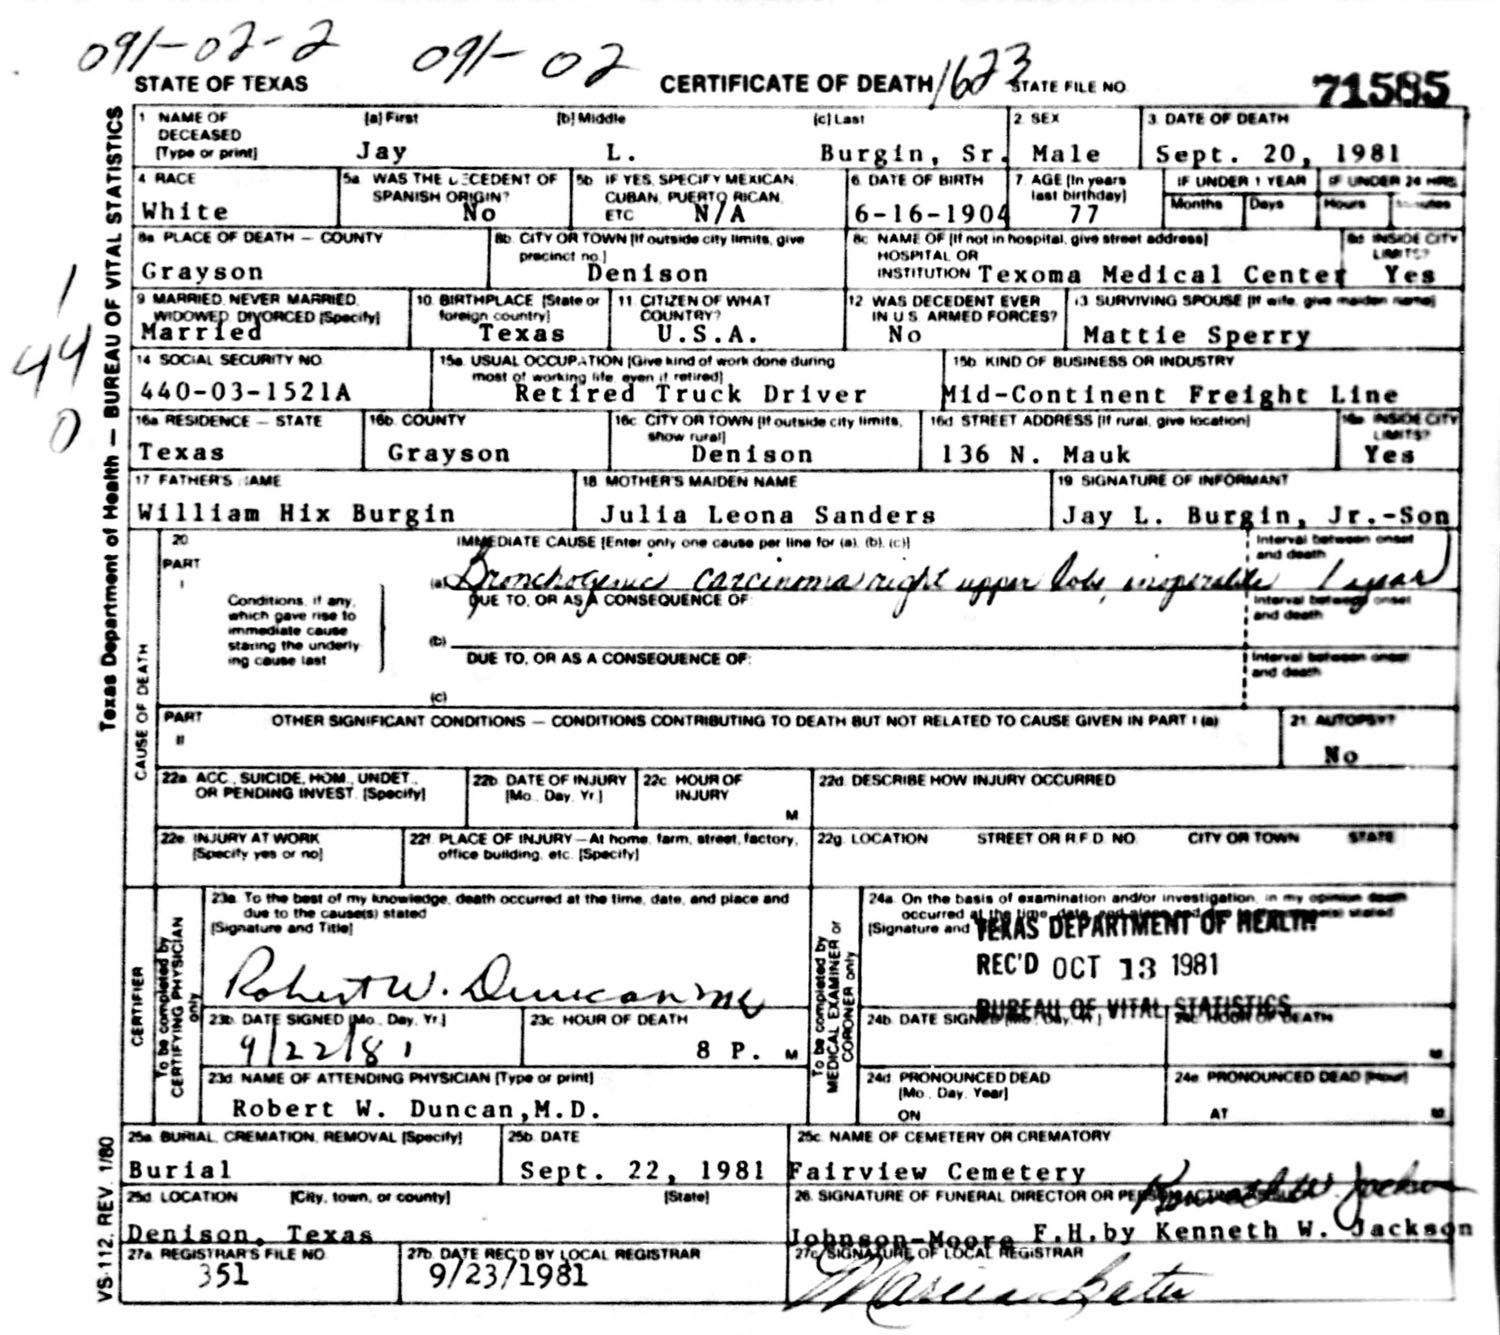 091-02-2 091-02 1623
STATE OF TEXAS CERTIFICATE OF DEATH STATE FILE NO. 71585
1 NAME OF DECEASED [Type or print] (a) First (b) Middle (c) Last 2. SEX 3. DATE OF DEATH
Jay L. Burgin, Sr. Male Sept. 20, 1981
4 RACE 5a WAS THE DECEDENT OF SPANISH ORIGIN? 5b IF YES, SPECIFY MEXICAN, CUBAN, PUERTO RICAN, ETC 6. DATE OF BIRTH 7. AGE [In years last birthday] IF UNDER 1 YEAR IF UNDER 24 HRS.
Months Days Hours Minutes
White No N/A 6-16-1904 77
8a PLACE OF DEATH — COUNTY 8b. CITY OR TOWN [If outside city limits, give precinct no.] 8c NAME OF [If not in hospital, give street address] HOSPITAL OR INSTITUTION 8d INSIDE CITY LIMITS?
Grayson Denison Texoma Medical Center Yes
9 MARRIED, NEVER MARRIED, WIDOWED, DIVORCED [Specify] 10. BIRTHPLACE [State or foreign country] 11. CITIZEN OF WHAT COUNTRY? 12 WAS DECEDENT EVER IN U.S. ARMED FORCES? 13 SURVIVING SPOUSE [If wife, give maiden name]
Married Texas U.S.A. No Mattie Sperry
14 SOCIAL SECURITY NO. 15a. USUAL OCCUPATION [Give kind of work done during most of working life, even if retired] 15b. KIND OF BUSINESS OR INDUSTRY
440-03-1521A Retired Truck Driver Mid-Continent Freight Line
16a RESIDENCE — STATE 16b. COUNTY 16c. CITY OR TOWN [If outside city limits, show rural] 16d STREET ADDRESS [If rural, give location] 16e INSIDE CITY LIMITS?
Texas Grayson Denison 136 N. Mauk Yes
17 FATHER'S NAME 18 MOTHER'S MAIDEN NAME 19 SIGNATURE OF INFORMANT
William Hix Burgin Julia Leona Sanders Jay L. Burgin, Jr.-Son
1
44
0
Texas Department of Health — BUREAU OF VITAL STATISTICS
CAUSE OF DEATH
20 IMMEDIATE CAUSE [Enter only one cause per line for (a), (b), (c)] Interval between onset and death
PART I
(a) Bronchogenic carcinoma right upper lobe, inoperable 1 year
Conditions, if any, which gave rise to immediate cause stating the underlying cause last
DUE TO, OR AS A CONSEQUENCE OF: Interval between onset and death
(b)
DUE TO, OR AS A CONSEQUENCE OF: Interval between onset and death
(c)
PART II OTHER SIGNIFICANT CONDITIONS — CONDITIONS CONTRIBUTING TO DEATH BUT NOT RELATED TO CAUSE GIVEN IN PART I (a) 21. AUTOPSY?
No
22a. ACC., SUICIDE, HOM., UNDET., OR PENDING INVEST. [Specify] 22b. DATE OF INJURY [Mo., Day, Yr.] 22c. HOUR OF INJURY M 22d. DESCRIBE HOW INJURY OCCURRED
22e. INJURY AT WORK [Specify yes or no] 22f. PLACE OF INJURY — At home, farm, street, factory, office building, etc. [Specify] 22g. LOCATION STREET OR R.F.D. NO. CITY OR TOWN STATE
CERTIFIER
To be completed by CERTIFYING PHYSICIAN only
23a. To the best of my knowledge, death occurred at the time, date, and place and due to the cause(s) stated
[Signature and Title]
Robert W. Duncan MD
23b. DATE SIGNED [Mo., Day, Yr.] 23c. HOUR OF DEATH
9/22/81 8 P. M
23d. NAME OF ATTENDING PHYSICIAN [Type or print]
Robert W. Duncan, M.D.
To be completed by MEDICAL EXAMINER or CORONER only
24a. On the basis of examination and/or investigation, in my opinion death occurred at the time, date, and place and due to the cause(s) stated
[Signature and
TEXAS DEPARTMENT OF HEALTH
REC'D OCT 13 1981
BUREAU OF VITAL STATISTICS
24b. DATE SIGNED [Mo., Day, Yr.] 24c. HOUR OF DEATH M
24d. PRONOUNCED DEAD [Mo., Day, Year] 24e. PRONOUNCED DEAD [Hour]
ON AT M
25a. BURIAL, CREMATION, REMOVAL [Specify] 25b. DATE 25c. NAME OF CEMETERY OR CREMATORY
Burial Sept. 22, 1981 Fairview Cemetery
25d. LOCATION [City, town, or county] [State] 26. SIGNATURE OF FUNERAL DIRECTOR OR PERSON ACTING Kenneth W. Jackson
Denison, Texas Johnson-Moore F.H. by Kenneth W. Jackson
27a REGISTRAR'S FILE NO. 27b. DATE REC'D BY LOCAL REGISTRAR 27c. SIGNATURE OF LOCAL REGISTRAR
351 9/23/1981
VS-112, REV. 1/80